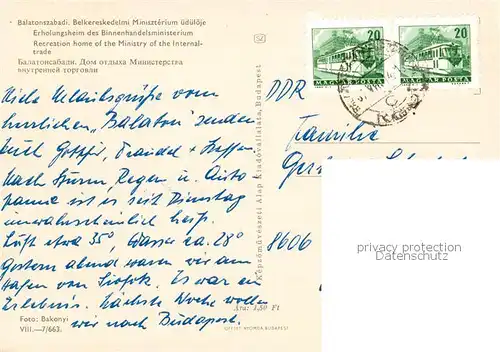 Balatonszabadi. Belkereskedelmi Minisztérium üdülője
Erholungsheim des Binnenhandelsministerium
Recreation home of the Ministry of the Internal-
trade
Балатонсабади. Дом отдыха Министерства
внутренней торговли
Viele Urlaubsgrüße vom
herrlichen "Balaton" senden
Euch Gottfr., Traudel + Steffen.
Nach Sturm, Regen u. Auto
panne ist es seit Dienstag
unwahrscheinlich heiß.
Luft etwa 35°, Wasser ca. 28°
Gestern abend waren wir am
Hafen von Siofok. Es war ein
Erlebnis. Nächste Woche wollen
wir nach Budapest.
Foto: Bakonyi
VIII.—7/663.
Ára: 1,50 Ft
Képzőművészeti Alap Kiadóvállalata, Budapest
20
MAGYAR POSTA
20
MAGYAR POSTA
DDR
Familie
8606
privacy protection
Datenschutz